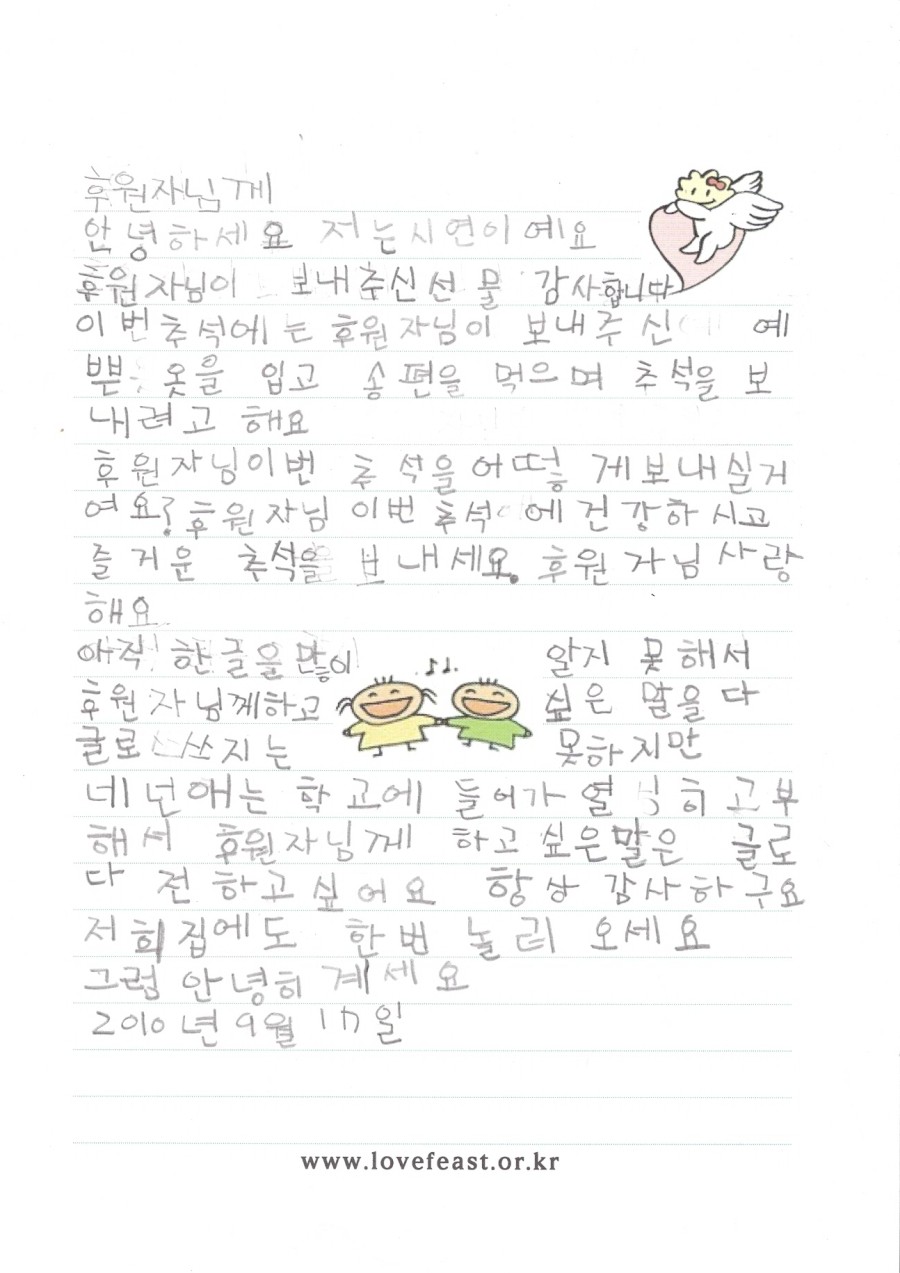 후원자님께
안녕하세요 저는시연이예요
후원자님이 보내주신선물 감사합니다
이번추석에는 후원자님이 보내주신 예
쁜 옷을 입고 송편을 먹으며 추석을 보
내려고 해요
후원자님이번 추석을어떻게보내실거
여요? 후원자님 이번추석에건강하시고
즐거운 추석을 보내세요. 후원자님사랑
해요
아직 한글을많이 알지 못해서
후원자님께하고 싶은 말을다
글로 쓰지는 못하지만
네넌애는 학교에 들어가 열식히고부
해서 후원자님께 하고싶은말은 글로
다 전하고싶어요 항상 감사하구요
저희집에도 한번 놀러 오세요
그럼안녕히계세요
2010년9월17일
www.lovefeast.or.kr